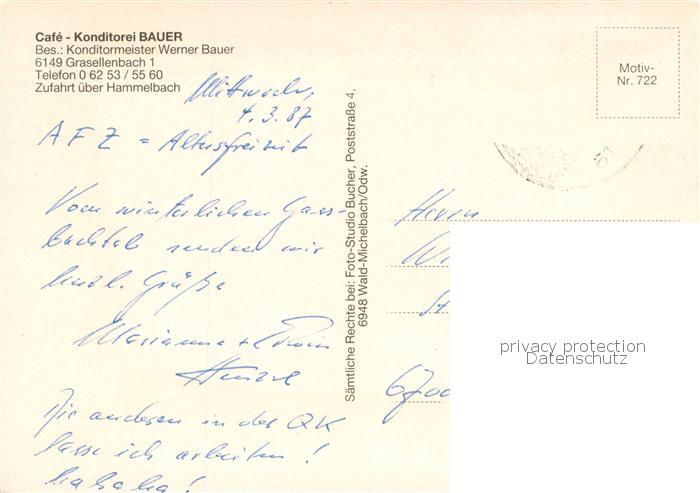 Café - Konditorei BAUER
Bes.: Konditormeister Werner Bauer
6149 Grasellenbach 1
Telefon 0 62 53 / 55 60
Zufahrt über Hammelbach
Mittwoch,
4.3.87
AFZ = Altersfreizeit
Vom winterlichen Gass-
bachtal senden wir
herzl. Grüße
Marianne + Erwin
Die anderen in der QK
lasse ich arbeiten!
ha ha ha!
Sämtliche Rechte bei: Foto-Studio Bucher, Poststraße 4,
6948 Wald-Michelbach/Odw.
Motiv-
Nr. 722
Herrn
6700
privacy protection
Datenschutz